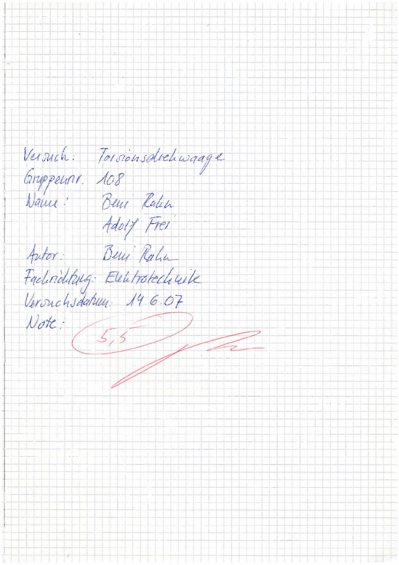 Versuch: Torsionsdrehwaage
Gruppennr. 108
Name: Beni Rahn
Adolf Frei
Autor: Beni Rahn
Fachrichtung: Elektrotechnik
Versuchsdatum: 14.6.07
Note: 5,5